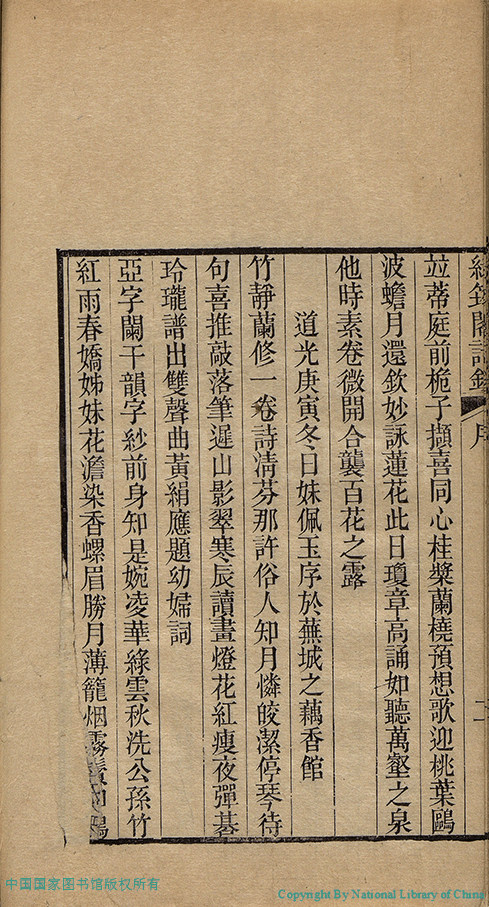 閣詩鈔 序 二
竝蒂庭前桅子擷喜同心桂槳蘭橈預想歌迎桃葉鷗
波蟾月還欽妙詠蓮花此日瓊章高誦如聽萬壑之泉
他時素卷微開合襲百花之露
道光庚寅冬日妹佩玉序於蕪城之藕香館
竹靜蘭修一卷詩淸芬那許俗人知月憐皎潔停琴待
句喜推敲落筆遲山影翠寒辰讀畫燈花紅瘦夜彈棊
玲瓏譜出雙聲曲黃絹應題幼婦詞
亞字闌干韻字紗前身知是婉凌華綠雲秋洗公孫竹
紅雨春嬌姊妹花澹染香螺眉勝月薄籠烟霧
中国国家图书馆版权所有
Copyright By National Library of China